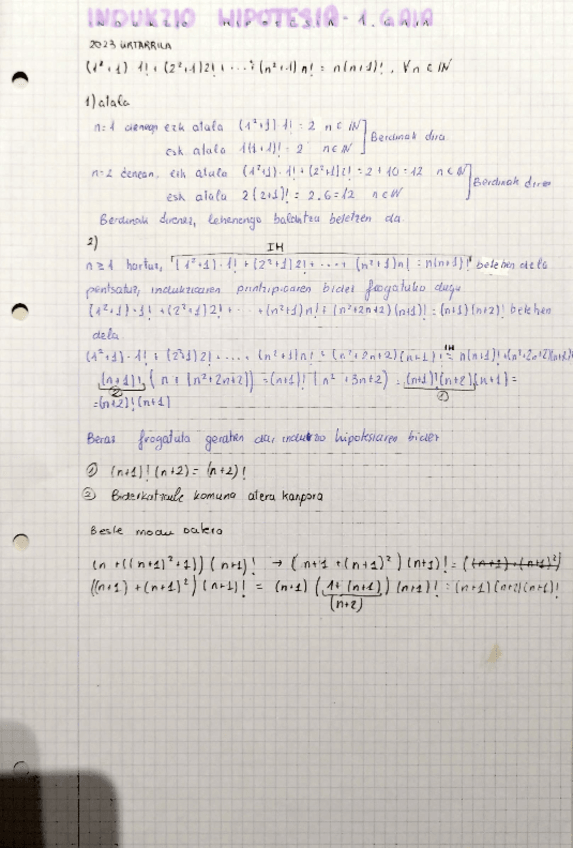 INDUKZIO HIPOTESIA - 1. GAIA
2023 URTARRILA
(1²+1) 1! + (2²+1) 2! + ... + (n²+1) n! = n(n+1)! , ∀ n ∈ ℕ
1) atala
n=1 denean ezk atala (1²+1) · 1! = 2 n ∈ ℕ
esk atala 1(1+1)! = 2 n ∈ ℕ ] Berdinak dira
n=2 denean, ezk atala (1²+1) · 1! + (2²+1) 2! = 2 + 10 = 12 n ∈ ℕ
esk atala 2(2+1)! = 2 · 6 = 12 n ∈ ℕ ] Berdinak dira
Berdinak direnez, lehenengo baldintza betetzen da.
2)
IH
n ≥ 1 hartuz, (1²+1) · 1! + (2²+1) 2! + .... + (n²+1) n! = n(n+1)! betetzen dela
pentsatuz, indukzioaren printzipioaren bidez frogatuko dugu
(1²+1) · 1! + (2²+1) 2! + ... + (n²+1) n! + (n²+2n+2)(n+1)! = (n+1)(n+2)! betetzen
dela
(1²+1) · 1! + (2²+1) 2! + .... + (n²+1) n! + (n²+2n+2)(n+1)! =ᴵᴴ n(n+1)! + (n²+2n+2)(n+1)
(n+1)! (n + (n²+2n+2)) = (n+1)! (n²+3n+2) = (n+1)! (n+2)(n+1) =
② ①
= (n+2)! (n+1)
Beraz frogatuta geratzen da, indukzio hipotesiaren bidez
① (n+1)! (n+2) = (n+2)!
② Biderkatzaile komuna atera kanpora
Beste modu batera
(n + ((n+1)²+1)) (n+1)! → (n+1 + (n+1)²) (n+1)! = ((n+1) + (n+1)²)
((n+1) + (n+1)²) (n+1)! = (n+1) (1 + (n+1)) (n+1)! = (n+1)(n+2)(n+1)!
(n+2)